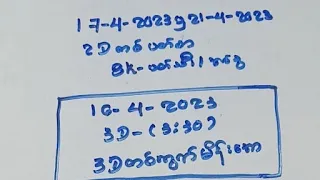 17-4-2023 မှ 21-4-2023
2D တစ်ပတ်စာ
BK-
16-4-2023
3D-(3:30)
3D တစ်ကွက်မိန်းကော